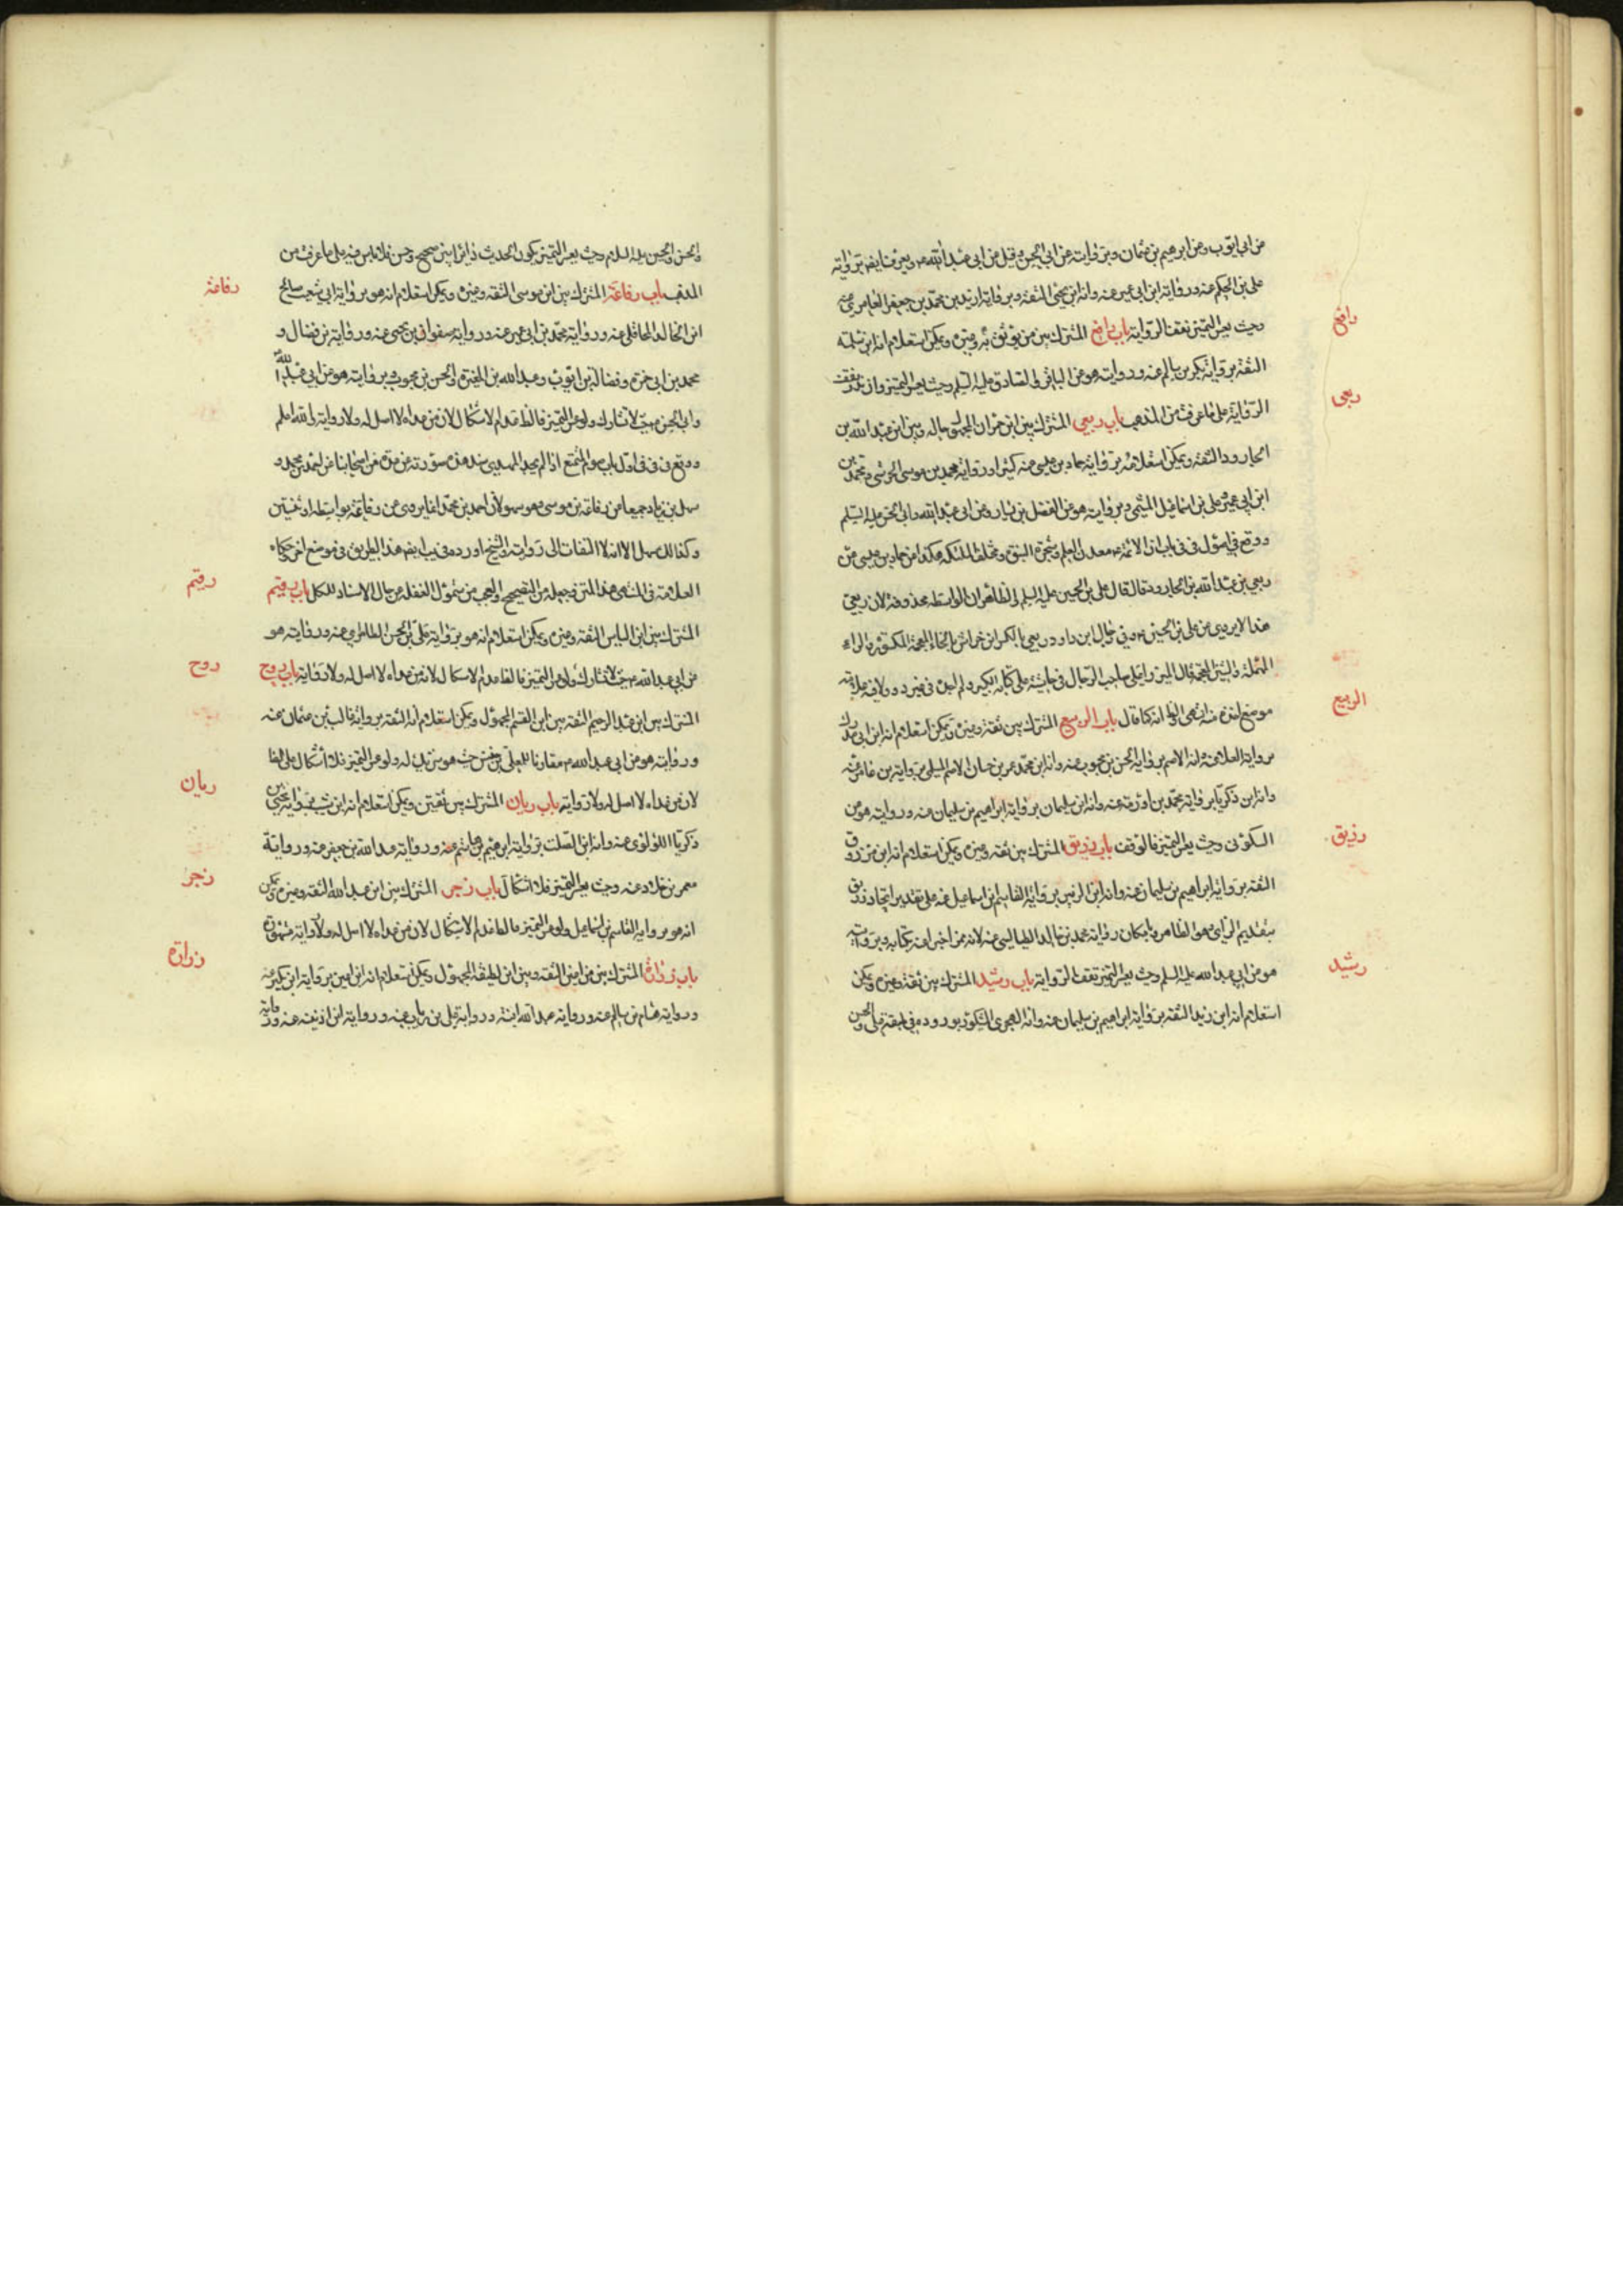 من ابي ايوب وعن ابرهيم بن عثمان وبروايته عن ابي الحسن وقيل عن ابي عبدالله ويعرف ايضا برواية
علي بن الحكم عنه ورواية ابن ابي عمير عنه وانه ابن يحيى الثقة وبرواية محمد بن جعفر العامري عنه
رافع
وحيث يعسر التميز تقف الرواية باب رافع المشترك بين من يوثق به وغيره ويمكن استعلام انه ابن سلمة
الثقة برواية بكر بن سالم عنه وروايته هو عن الباقر والصادق عليه السلم وحيث يعسر التميز
ربعي
الرواية على ما عرفت من المذهب باب ربعي المشترك بين ابن حمران المجهول حاله وبين ابن عبدالله بن
الجارود الثقة ويمكن استعلامه برواية حماد بن عيسى عنه كثيرا ورواية محمد بن موسى الحرشي ومحمد بن
ابن ابي عمير وعلي بن اسماعيل الميثمي وبروايته هو عن الفضيل بن يسار وعن ابي عبدالله وابي الحسن عليه السلم
ووقع في اصول في باب ان الائمة معدن العلم وشجرة النبوة ومختلف الملئكة هكذا عن حماد بن عيسى عن
ربعي بن عبدالله بن الجارود قال قال علي بن الحسين عليه السلم والظاهر ان الواسطة محذوفة لان ربعي
هذا لا يروي عن علي بن الحسين وفي رجال ابن داود ربعي بالكسر ابن خراش بالخاء المعجمة المكسورة والراء
المهملة والشين المعجمة قال الميرزا علي صاحب الرجال في حاشية على كتابه الكبير ولم اجده في غير د
الربيع
موضع اخذه منه انتهى انه كما قال باب الربيع المشترك بين ثقة وغيره ويمكن استعلام انه ابن ابي مدرك
برواية العلا عنه وانه الاصم برواية الحسن بن محبوب عنه وانه ابن محمد عمر بن حسان الاصم المسلي برواية بن عامر عنه
وانه ابن زكريا برواية محمد بن اورمة عنه وانه ابن سليمان برواية ابراهيم بن سليمان عنه وروايته هو عن
رزيق
السكوني وحيث يعسر التميز فالوقف باب رزيق المشترك بين ثقة وغيره ويمكن استعلام انه ابن مرزوق
الثقة برواية ابراهيم بن سليمان عنه وانه ابن الزبير برواية القاسم ابن اسماعيل عنه على تقدير اتحاد زريق
بتقديم الزاي وهو الظاهر وامكان رواية محمد بن خالد الطيالسي عنه لانه ممن اخبر انه بكتابه وبروايته
رشيد
هو عن ابي عبدالله عليه السلم وحيث يعسر التميز تقف الرواية باب رشيد المشترك بين ثقة وغيره ويمكن
استعلام انه ابن زيد الثقة برواية ابراهيم بن سليمان عنه وانه الهجري المشكور بوروده في طبقة علي والحسن
والحسن والحسين عليه السلام وحيث يعسر التميز يكون الحديث دائرا بين صحيح وحسن فلا باس فيه على ما عرفت من
رفاعة
المذهب باب رفاعة المشترك بين ابن موسى الثقة وغيره ويمكن استعلام انه هو برواية ابي شعيب صالح
ابن الخالد المحاملي عنه ورواية محمد بن ابي عمير عنه ورواية صفوان بن يحيى عنه ورواية بن فضال و
محمد بن ابي حمزة وفضالة بن ايوب وعبدالله بن المغيرة والحسن بن محبوب وبروايته هو عن ابي عبدالله
وابي الحسن حيث لا تشارك ولو عسر التميز فالظ عدم الاشكال لان من عداه لا اصل له ولا رواية والله اعلم
ووقع في اول باب صوم المتمتع اذا لم يجد الهدي سند هذه صورته عدة من اصحابنا عن احمد بن محمد و
سهل بن زياد جميعا عن رفاعة بن موسى وهو سهو لان احمد بن محمد انما يروي عن رفاعة بواسطة او ثنتين
وكذا سهل الا انه لا التفات الى روايته والشيخ اورده في يب ايضا هذا الطريق في موضع اخر حكاه
رقيم
العلامة في المنتهى هذا المتن وجعله من الصحيح والعجب من شمول الغفلة عن حال الاسناد للكل باب رقيم
المشترك بين ابن الياس الثقة وغيره ويمكن استعلام انه هو برواية علي بن الحسن الطاطري عنه وروايته هو
روح
عن ابي عبدالله حيث لا تشارك ولو عسر التميز فالظ عدم الاشكال لان من عداه لا اصل له ولا رواية باب روح
المشترك بين ابن عبد الرحيم الثقة وبين ابن القسم المجهول ويمكن استعلام انه الثقة برواية غالب بن عثمان عنه
وروايته هو عن ابي عبدالله مقارنا للمعلى بن خنيس حيث هو شريك له ولو عسر التميز فلا اشكال على الظ
ريان
لان من عداه لا اصل له ولا رواية باب ريان المشترك بين ثقتين ويمكن استعلام انه ابن شبيب برواية يحيى بن
زكريا اللؤلؤي عنه وانه ابن الصلت برواية ابرهيم بن هاشم عنه ورواية عبدالله بن جعفر عنه ورواية
زحر
معمر بن خلاد عنه وحيث يعسر التميز فلا اشكال باب زحر المشترك بين ابن عبدالله الثقة وغيره ويمكن
انه هو برواية القاسم بن اسماعيل ولو عسر التميز فالظ عدم الاشكال لان من عداه لا اصل له ولا رواية
زرارة
باب زرارة المشترك بين ابن اعين الثقة وبين ابن لطيفة المجهول ويمكن استعلام انه ابن اعين برواية ابن بكير عنه
ورواية هشام بن سالم عنه ورواية عبدالله ابنه ورواية علي بن رئاب عنه ورواية ابن اذينه عنه ورواية